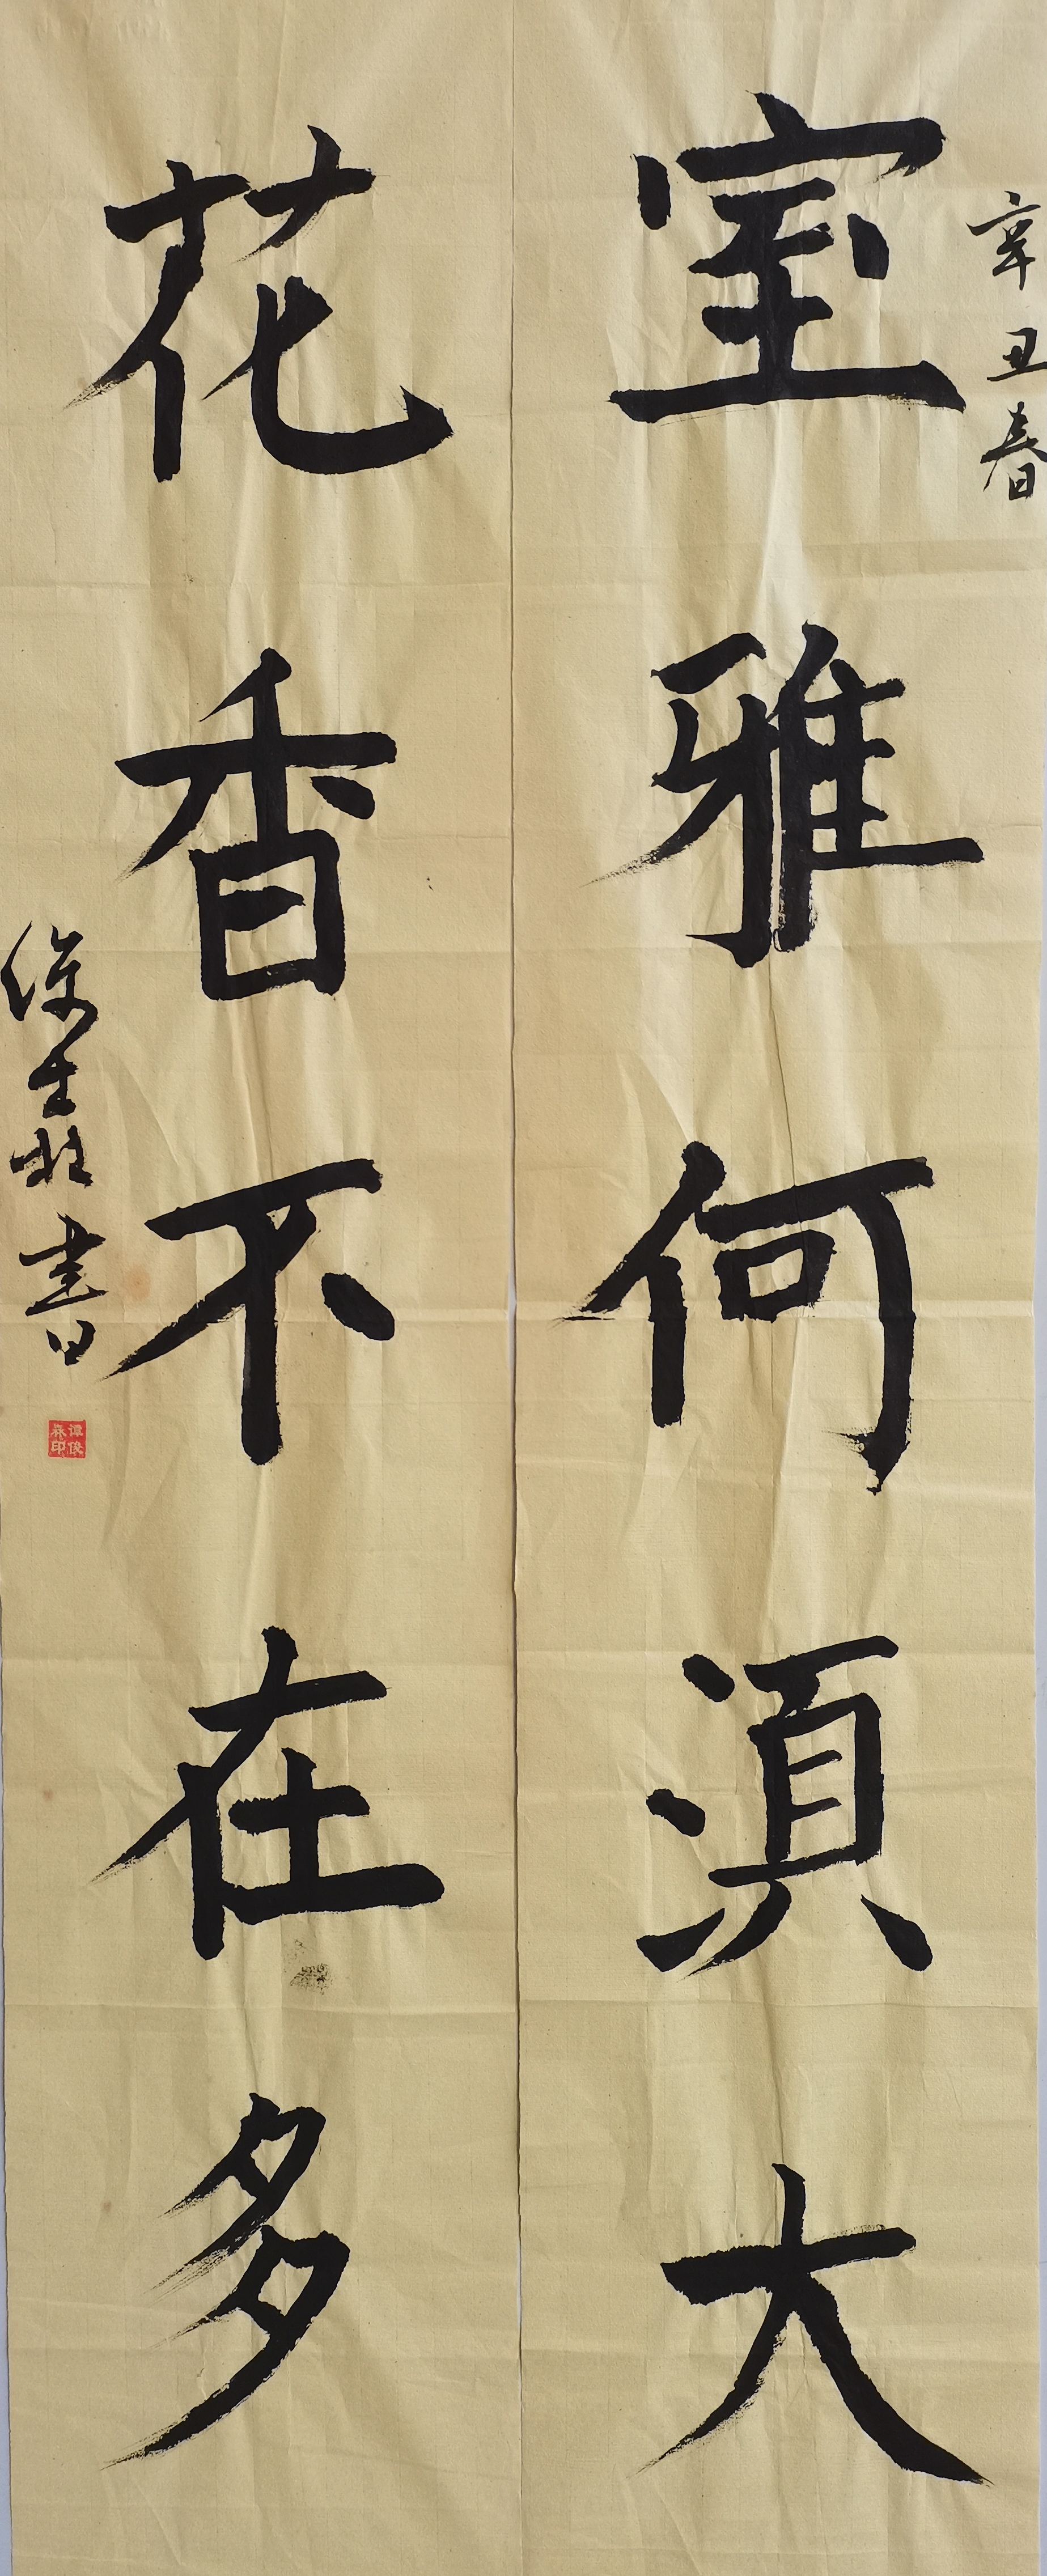 辛丑春
室雅何須大
花香不在多
書